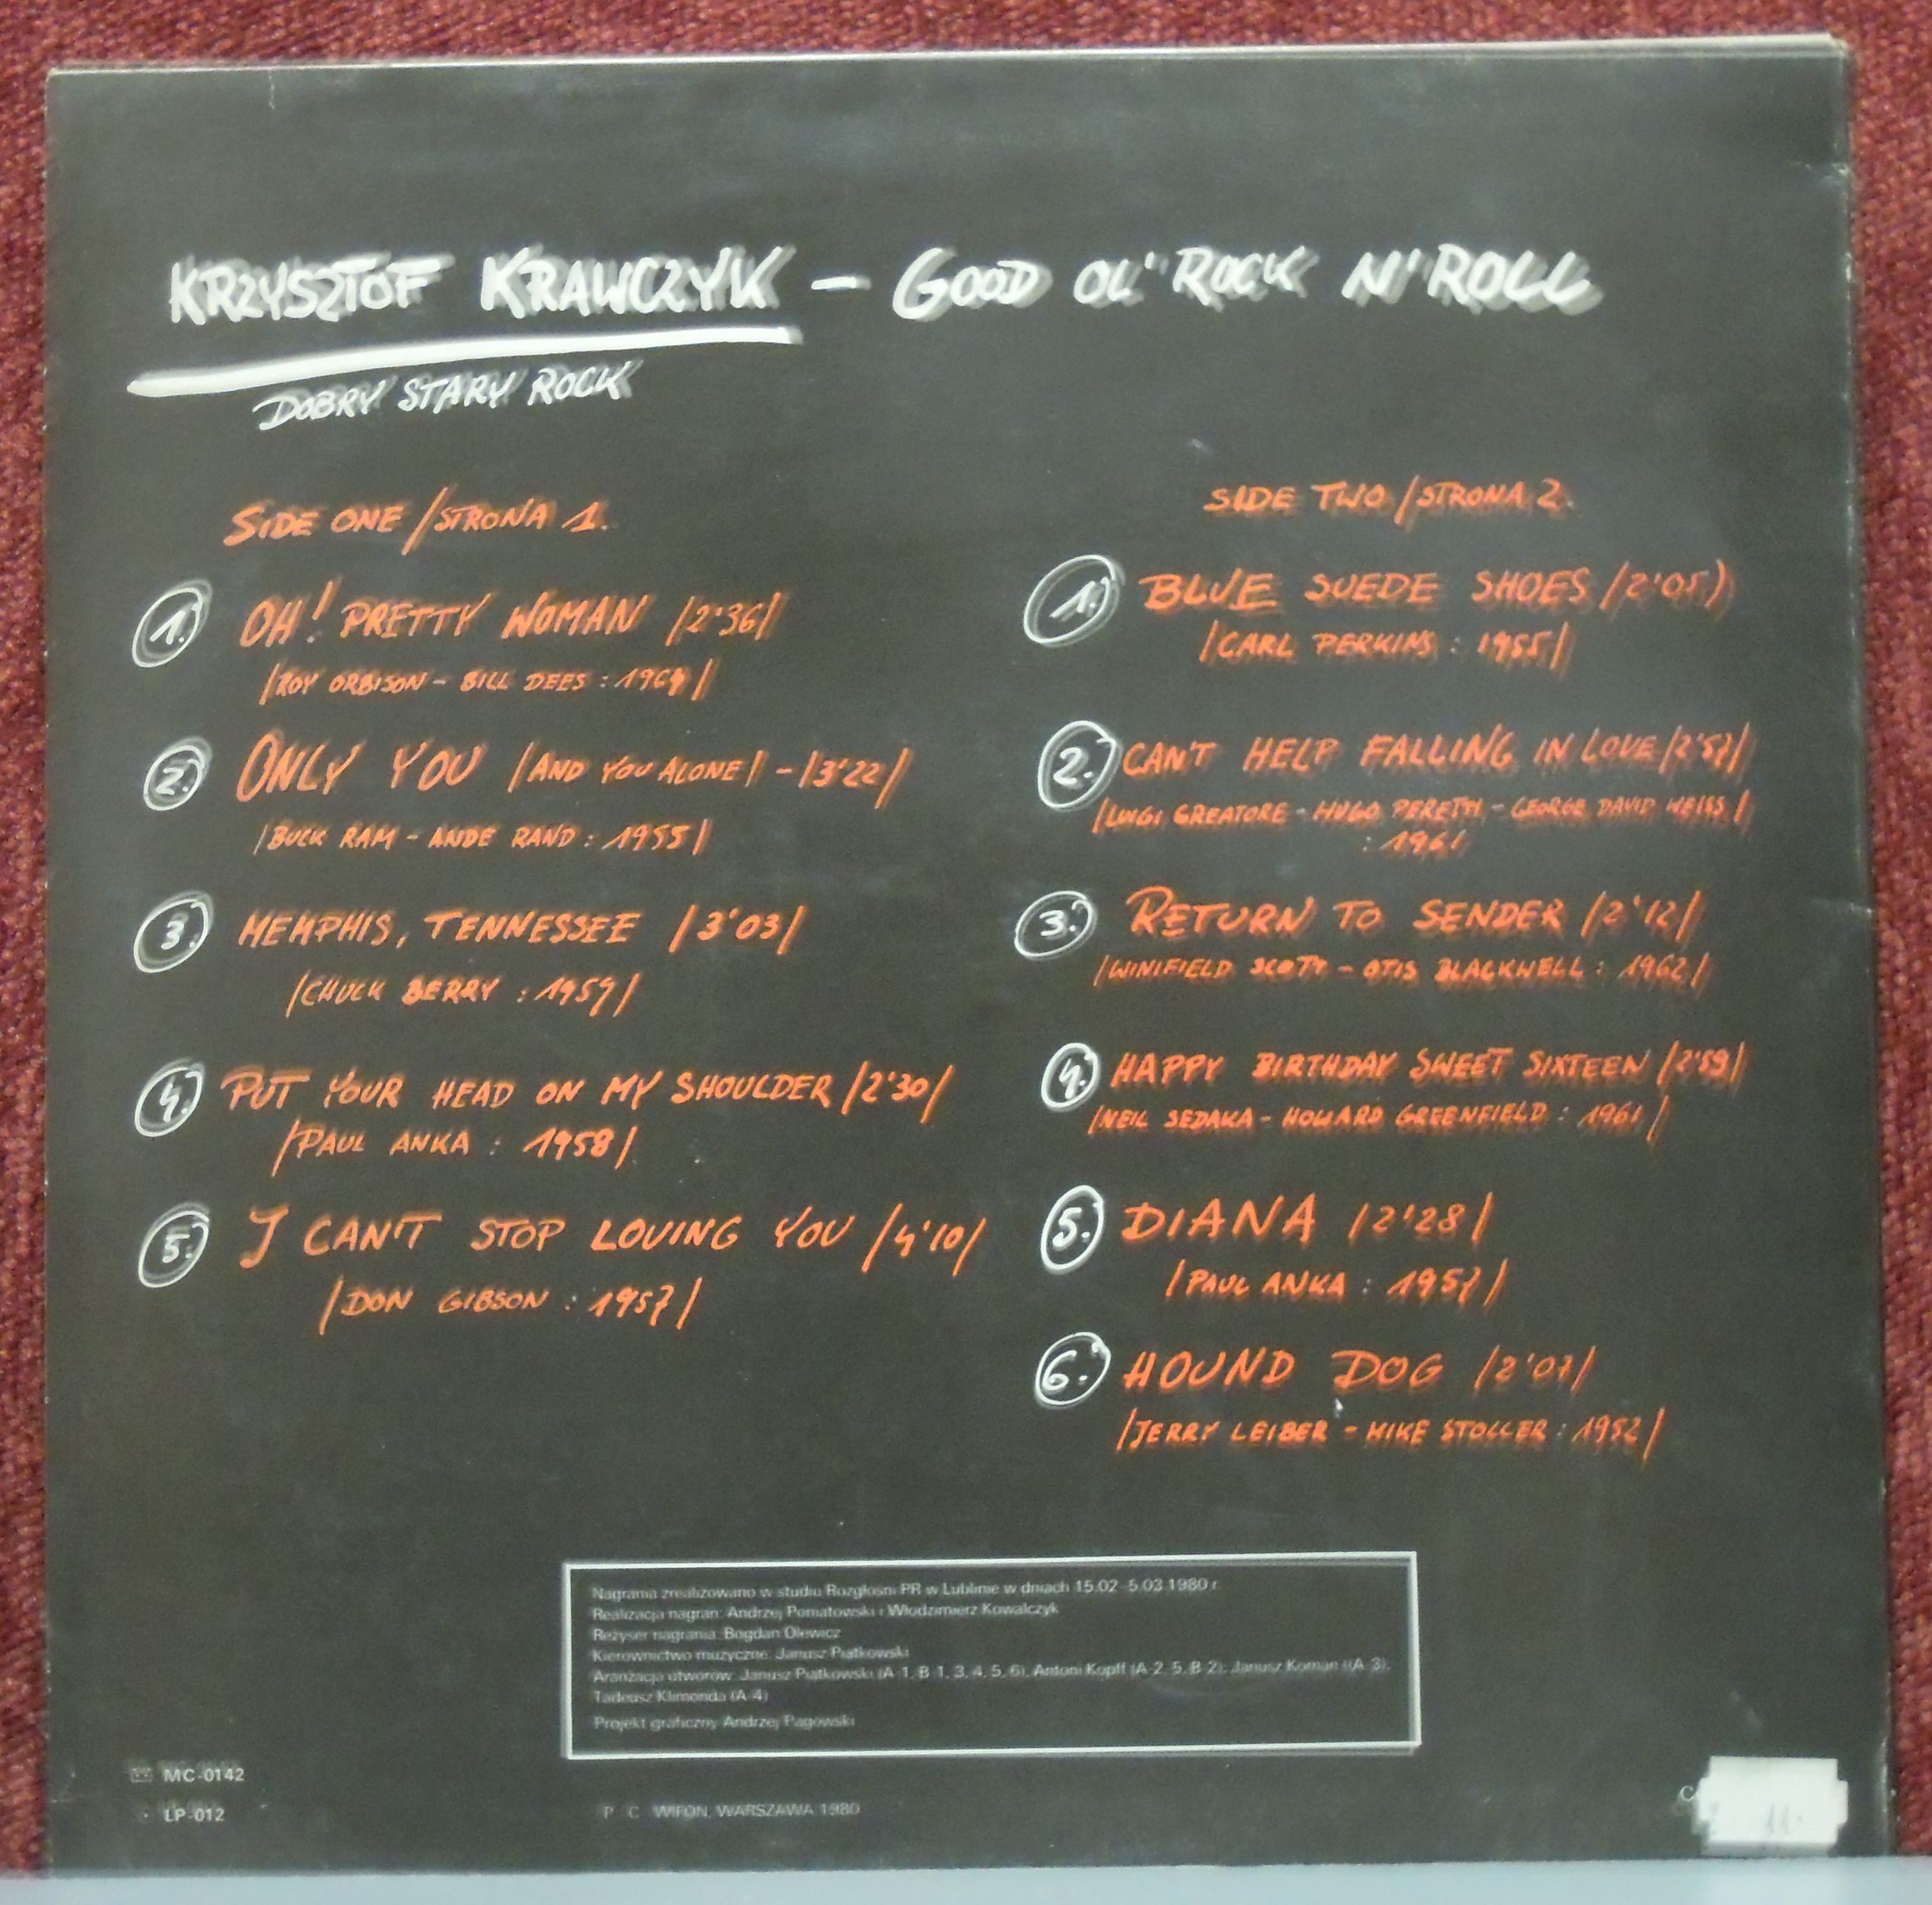 KRZYSZTOF KRAWCZYK – GOOD OL' ROCK N' ROLL
DOBRY STARY ROCK
SIDE ONE /STRONA 1.
1. OH! PRETTY WOMAN /2'36/
/ROY ORBISON – BILL DEES : 1964/
2. ONLY YOU /AND YOU ALONE/ – /3'22/
/BUCK RAM – ANDE RAND : 1955/
3. MEMPHIS, TENNESSEE /3'03/
/CHUCK BERRY : 1959/
4. PUT YOUR HEAD ON MY SHOULDER /2'30/
/PAUL ANKA : 1958/
5. I CAN'T STOP LOVING YOU /4'10/
/DON GIBSON : 1957/
SIDE TWO /STRONA 2.
1. BLUE SUEDE SHOES /2'05)
/CARL PERKINS : 1955/
2. CAN'T HELP FALLING IN LOVE /2'57/
/LUIGI CREATORE – HUGO PERETTI – GEORGE DAVID WEISS /
: 1961
3. RETURN TO SENDER /2'12/
/WINIFIELD SCOTT – OTIS BLACKWELL : 1962/
4. HAPPY BIRTHDAY SWEET SIXTEEN /2'59/
/NEIL SEDAKA – HOWARD GREENFIELD : 1961/
5. DIANA /2'28/
/PAUL ANKA : 1957/
6. HOUND DOG /2'07/
/JERRY LEIBER – MIKE STOLLER : 1952/
Nagrania zrealizowano w studiu Rozgłośni PR w Lublinie w dniach 15.02–5.03.1980 r.
Realizacja nagrań: Andrzej Poniatowski i Włodzimierz Kowalczyk
Reżyser nagrania: Bogdan Olewicz
Kierownictwo muzyczne: Janusz Piątkowski
Aranżacja utworów: Janusz Piątkowski (A-1, B-1, 3, 4, 5, 6), Antoni Kopff (A-2, 5, B-2); Janusz Koman ((A-3),
Tadeusz Klimonda (A-4)
Projekt graficzny Andrzej Pągowski
MC-0142
LP-012
P C WIFON, WARSZAWA 1980
C
11.